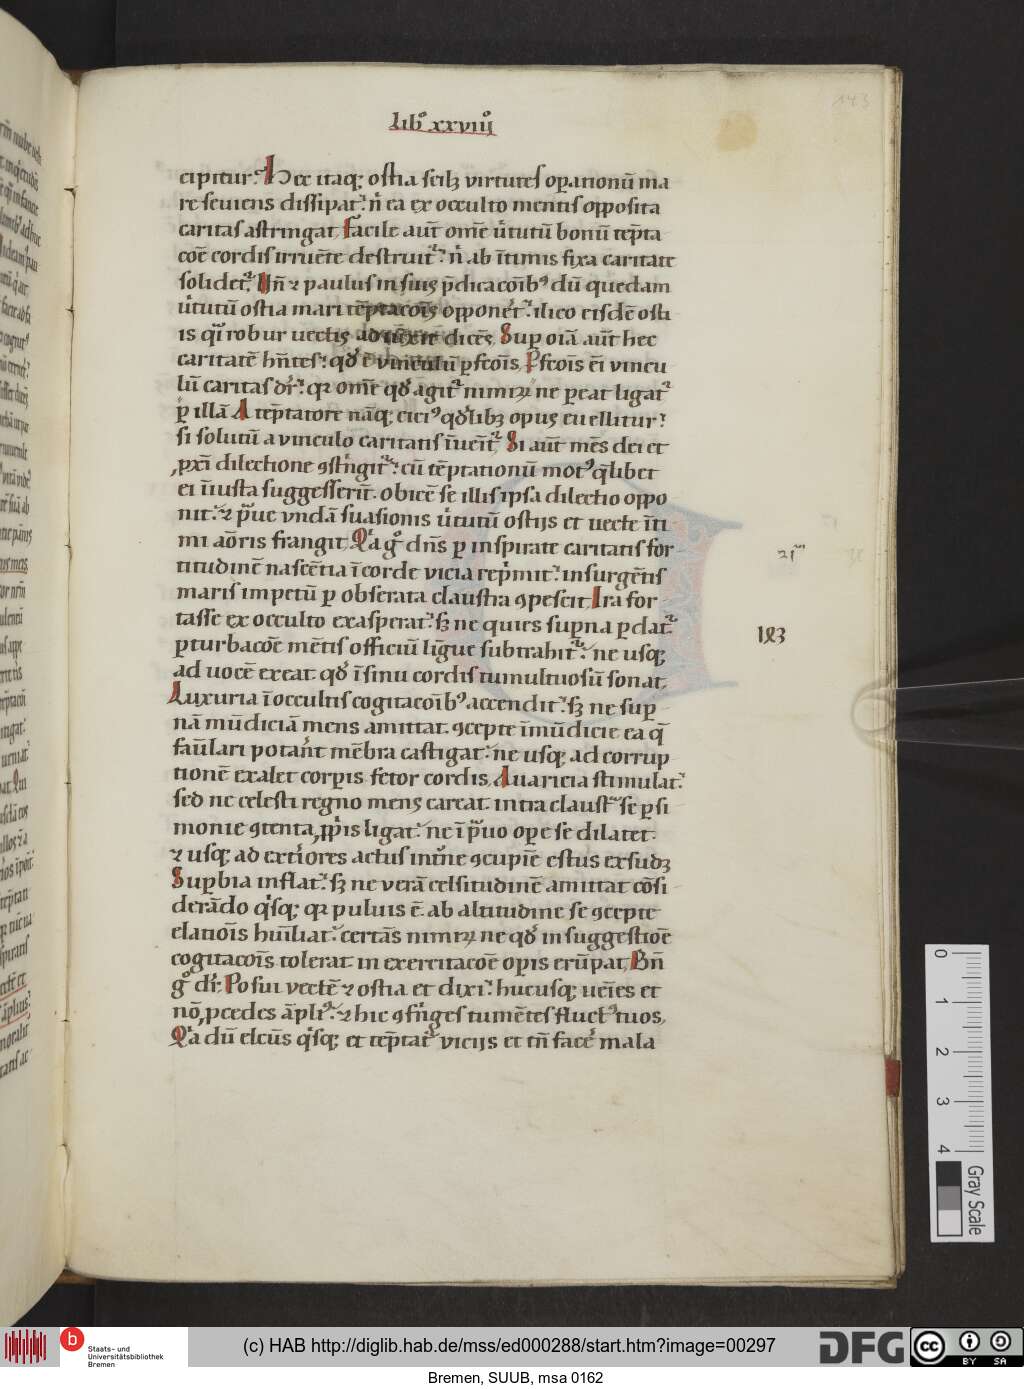 143
Libꝰ xxviiiꝰ
cipitur. Hec itaqꝫ ostia scilꝫ virtutes oꝑationū ma
re seuiens dissipat: n̄ ea ex occulto mentis opposita
caritas astringat. Facile aut̄ om̄e ùtutū bonū tēpta
coē cordis irruēte destruit: n̄ ab ītimis fixa caritate
solidet. Hīn ⁊ paulus in suis p̄dicacoībꝰ dū quedam
ùtutū ostia mari tēptacoīs opponet: ilico eisdē osti
is qͣi robur uectis adiūxit dicēs. Suꝑ oīa aut̄ hec
caritatē hn̄tes: qd̄ ē vinculū ꝑfcoīs. Pfcoīs ei vincu
lū caritas dr̄: qꝛ om̄e qd̄ agit nimiꝝ ne ꝑeat ligat
ꝑ illā. A tēptatore nāqꝫ ciciꝰ qd̄libꝫ opus euellitur:
si solutū a vinculo caritatis īueīt. Si aut̄ mēs dei et
ꝓxi dilectione ꝯstͥngit: cū tēptationū motꝰ q̄libet
ei īiusta suggesserīt. obicē se illis ipsa dilectio oppo
nit. ⁊ pͣue vndā suasionis ùtutū ostijs et uecte īti
mi aōris frangit. Qͥa gͦ dn̄s ꝑ inspirate caritatis for
titudinē nascētia ī corde vicia rep̄mit: insurgētis
maris impetū ꝑ obserata claustra ꝯpescit. Ira for
tasse ex occulto exasperat: sꝫ ne quies suꝑna ꝑdat:
ꝑturbacoē mētis officiū līgue subtrahit: ne usqꝫ
ad uocē exeat qd̄ ī sinu cordis tumultuosū sonat.
Luxuria ī occultis cogitacoībꝰ accendit: sꝫ ne suꝑ
nā mūdiciā mens amittat. ꝯcepte īmūdicie ea q̄
faūlari potant mēbra castigat: ne usqꝫ ad corrup
tionē exalet corꝑis fetor cordis. Auaricia stimulat:
sed ne celesti regno mens careat. intra claustͣ se ꝑsi
monie ꝯtenta ꝓpͥis ligat: ne ī pͣuo oꝑe se dilatet.
⁊ usqꝫ ad extiores actus int̄ne ꝯcupīe estus exsudꝫ
Suꝑbia inflat: sꝫ ne verā celsitudinē amittat cōsi
derādo qͥsqꝫ qꝛ puluis ē. ab altitudine se ꝯcepte
elatioīs hum̄iliat: certās nimiꝝ ne qd̄ in suggestioē
cogitacoīs tolerat in exercitacoē oꝑis erūpat. Bn̄
gͦ dr̄. Posui vectē ⁊ ostia et dixi: hucusqꝫ ueīes et
nō ꝓcedes āpliꝰ: ⁊ hic ꝯfͥnges tumētes fluctꝰ tuos.
Qͥa dū elcūs qͥsqꝫ et tēptat vicijs et tn̄ facē mala
21
183
0
1
2
3
4
Gray Scale
Staats- und
Universitätsbibliothek
Bremen
(c) HAB http://diglib.hab.de/mss/ed000288/start.htm?image=00297
DFG
cc
BY SA
Bremen, SUUB, msa 0162